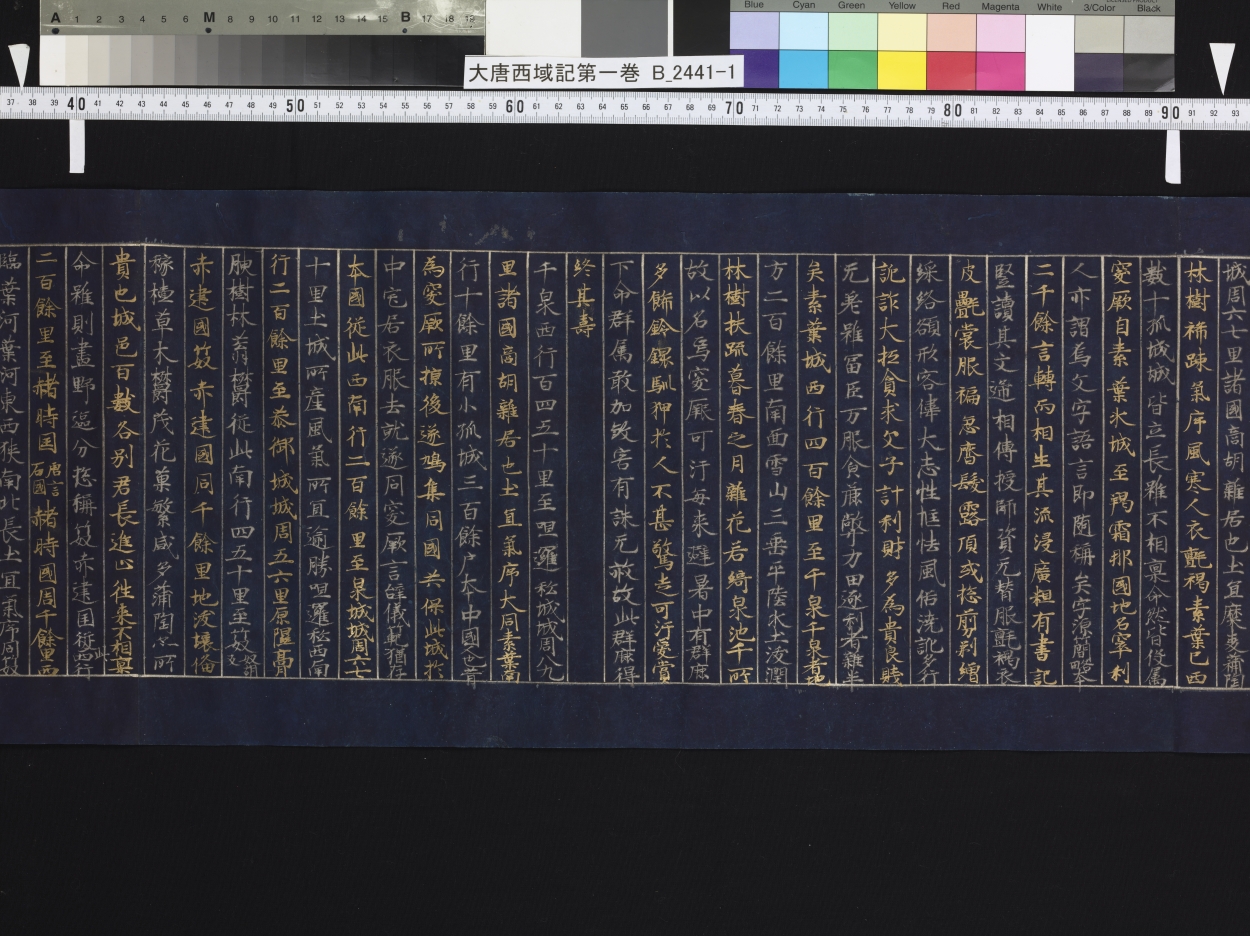 A 1 2 3 4 5 6 M 8 9 10 11 12 13 14 15 B 17 18 19
Blue Cyan Green Yellow Red Magenta White 3/Color Black
大唐西域記第一巻 B_2441-1
37 38 39 40 41 42 43 44 45 46 47 48 49 50 51 52 53 54 55 56 57 58 59 60 61 62 63 64 65 66 67 68 69 70 71 72 73 74 75 76 77 78 79 80 81 82 83 84 85 86 87 88 89 90 91 92 93
城周六七里諸國商胡雜居也土宜糜麥蒲陶
林樹稀踈氣序風寒人衣氈褐素葉已西
數十孤城城皆立長雖不相稟命然皆役屬
突厥自素葉水城至羯霜那國地名窣利
人亦謂焉文字語言即隨稱矣字源簡略本
二千餘言轉而相生其流浸廣粗有書記
竪讀其文遞相傳授師資无替服氈褐衣
皮㲲裳服褊急齊髮露頂或揔剪剃繒
綵絡額形容偉大志性恇怯風俗澆訛多行
詭詐大抵貪求父子計利財多為貴良賤
无差雖冨巨万服食麁弊力田逐利者雜半
矣素葉城西行四百餘里至千泉千泉者地
方二百餘里南面雪山三垂平陸水土沃潤
林樹扶疏暮春之月雜花若綺泉池千所
故以名焉突厥可汗每來避暑中有群鹿
多飾鈴鐶馴狎於人不甚驚走可汗愛賞
下命群属敢加敓害有誅无赦故此群鹿得
終其壽
千泉西行百四五十里至呾邏私城城周八九
里諸國商胡雜居也土宜氣序大同素葉南
行十餘里有小孤城三百餘户本中國也昔
為突厥所掠後遂鳩集同國共保此城於
中宅居衣服去就遂同突厥言辝儀範猶存
本國從此西南行二百餘里至泉城城周六七
十里土城所産風氣所宜逾勝呾邏私西南
行二百餘里至恭御城城周五六里原隰膏
腴樹林蓊欝從此南行四五十里至笯
赤建國笯赤建國周千餘里地沃壤俻
稼穡草木欝茂花菓繁盛多蒲陶亦所
貴也城邑百數各别君長進止往來不相稟
命雖則畫野區分揔稱笯赤建国從此西行
二百餘里至赭時国唐言石國赭時國周千餘里西
臨葉河葉河東西狹南北長土宜氣序同笯